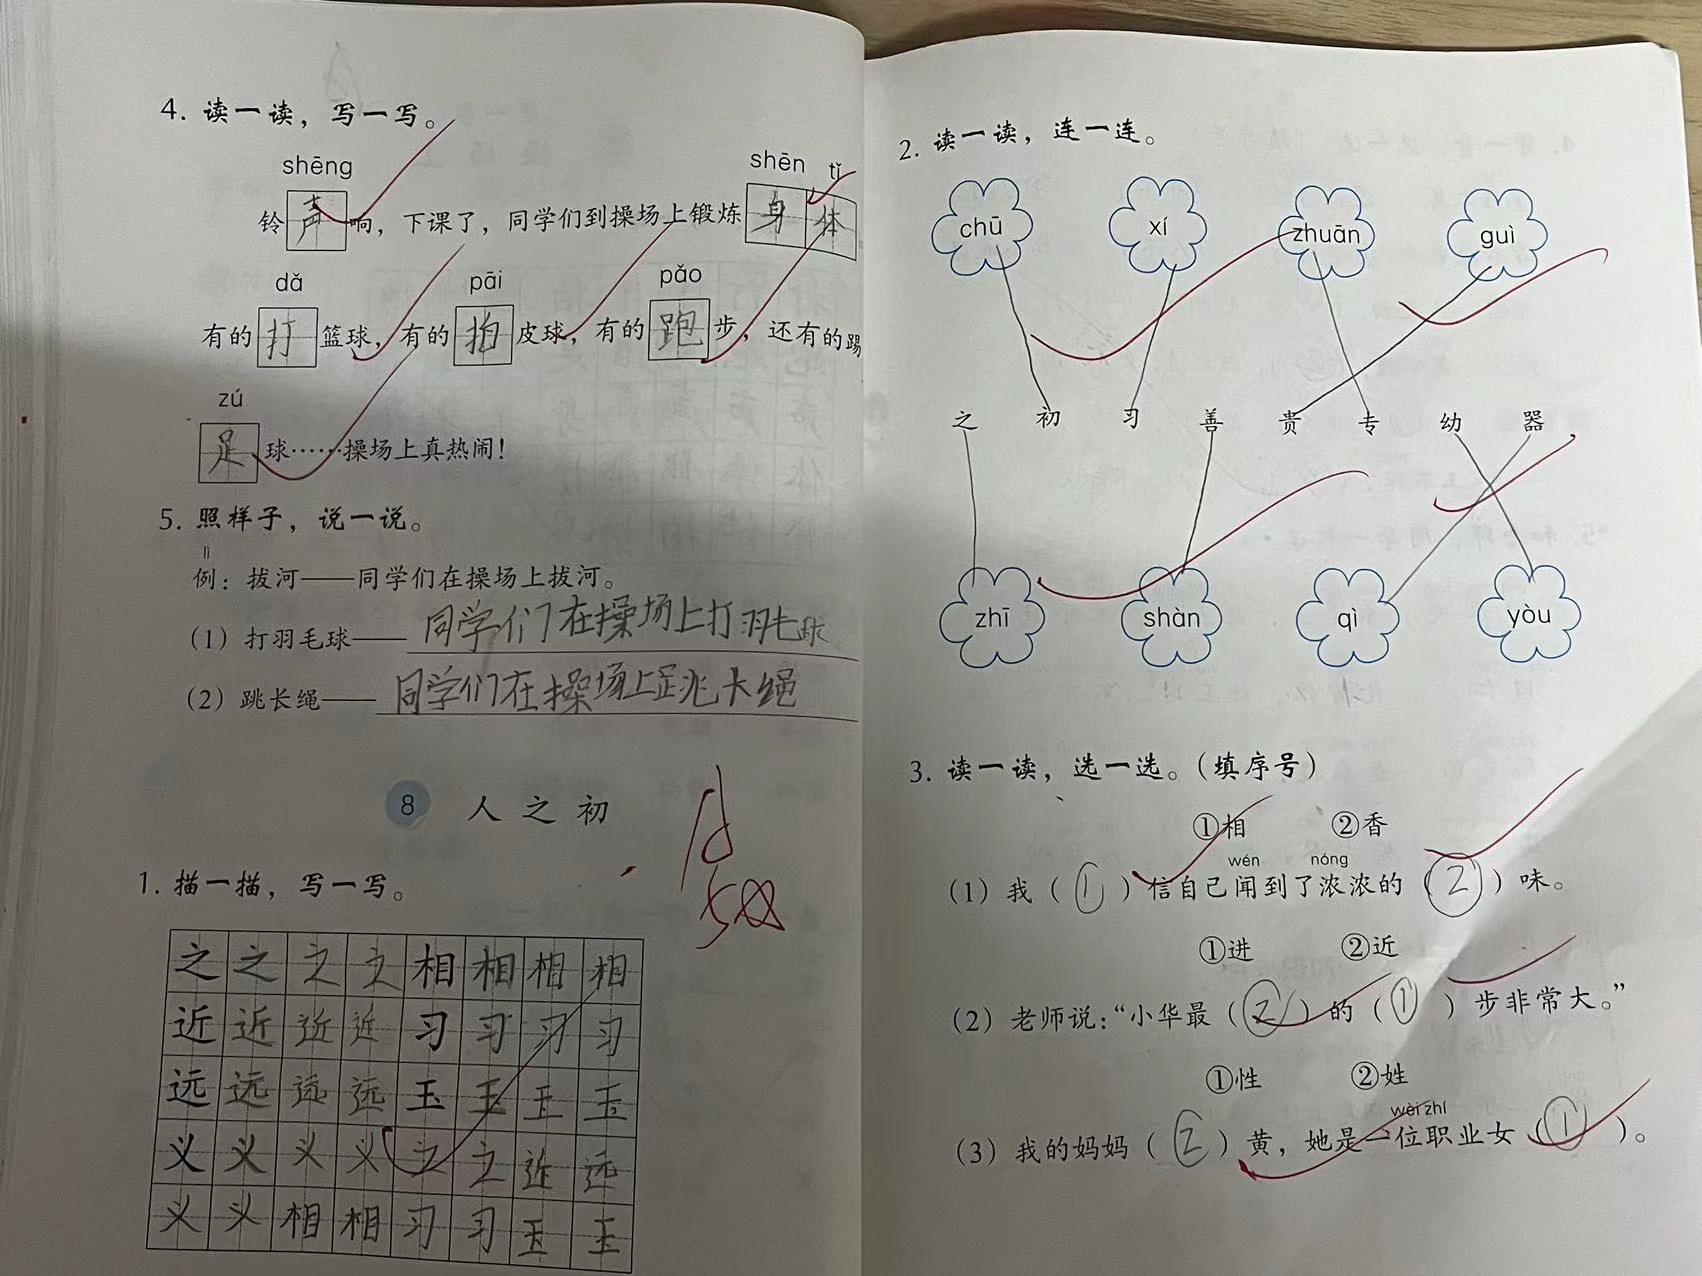 4. 读一读，写一写。
shēng shēn tǐ
铃声响，下课了，同学们到操场上锻炼身体
dǎ pāi pǎo
有的打篮球，有的拍皮球，有的跑步，还有的踢
zú
足球……操场上真热闹！
5. 照样子，说一说。
lì
例：拔河——同学们在操场上拔河。
（1）打羽毛球——同学们在操场上打羽毛球
（2）跳长绳——同学们在操场上跳长绳
8 人之初
1. 描一描，写一写。
之之之之相相相相
近近近近习习习习
远远远远玉玉玉玉
义义义义之之近远
义义相相习习玉玉
2. 读一读，连一连。
chū xí zhuān guì
之 初 习 善 贵 专 幼 器
zhī shàn qì yòu
3. 读一读，选一选。（填序号）
①相 ②香
wén nóng
（1）我（①）信自己闻到了浓浓的（②）味。
①进 ②近
（2）老师说：“小华最（②）的（①）步非常大。”
①性 ②姓
wèi zhí
（3）我的妈妈（②）黄，她是一位职业女（①）。